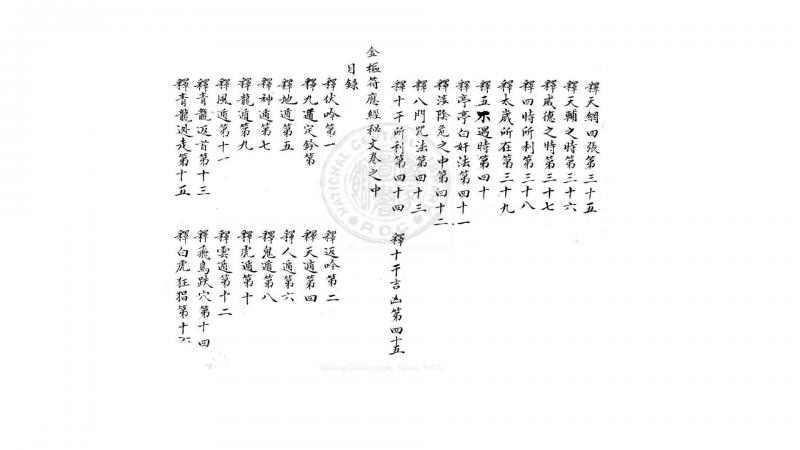 釋天網四張第三十五
釋天輔之時第三十六
釋威德之時第三十七
釋四時所利第三十八
釋太歲所在第三十九
釋五不遇時第四十
釋亭亭白奸法第四十一
釋八門咒法第四十三
釋十干所利第四十四
釋十干吉凶第四十五
金樞符應經秘文卷之中
目錄
釋伏吟第一
釋返吟第二
釋九遁定鈐第
釋天遁第四
釋地遁第五
釋人遁第六
釋神遁第七
釋鬼遁第八
釋龍遁第九
釋虎遁第十
釋風遁第十一
釋雲遁第十二
釋青龍返首第十三
釋飛鳥跌穴第十四
釋青龍逃走第十五
釋白虎狂猖第十六
NATIONAL CENTRAL LIBRARY
R.O.C.
National Central Library, Taiwan, R.O.C